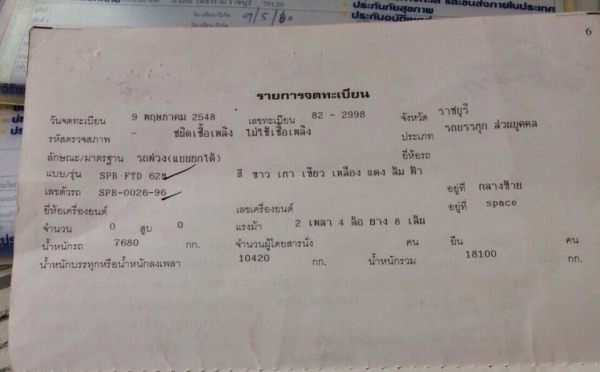 70120
วันเสียภาษี 9/5/60
และขนส่งภายในประเทศ
ประกันภัยสุขภาพ
ประกันอุบัติเหตุ
6
รายการจดทะเบียน
วันจดทะเบียน 9 พฤษภาคม 2548 เลขทะเบียน 82 - 2998 จังหวัด ราชบุรี
รหัสตรวจสภาพ - ชนิดเชื้อเพลิง ไม่ใช้เชื้อเพลิง ประเภท รถบรรทุก ส่วนบุคคล
ลักษณะ/มาตรฐาน รถพ่วง(แบบยกได้) ยี่ห้อรถ
แบบ/รุ่น SPB FTD 62 สี ขาว เทา เขียว เหลือง แดง ส้ม ฟ้า
เลขตัวรถ SPB-0026-96 อยู่ที่ กลางซ้าย
ยี่ห้อเครื่องยนต์ เลขเครื่องยนต์ อยู่ที่ space
จำนวน 0 สูบ 0 แรงม้า 2 เพลา 4 ล้อ ยาง 8 เส้น
น้ำหนักรถ 7680 กก. จำนวนผู้โดยสารนั่ง คน ยืน คน
น้ำหนักบรรทุกหรือน้ำหนักลงเพลา 10420 กก. น้ำหนักรวม 18100 กก.